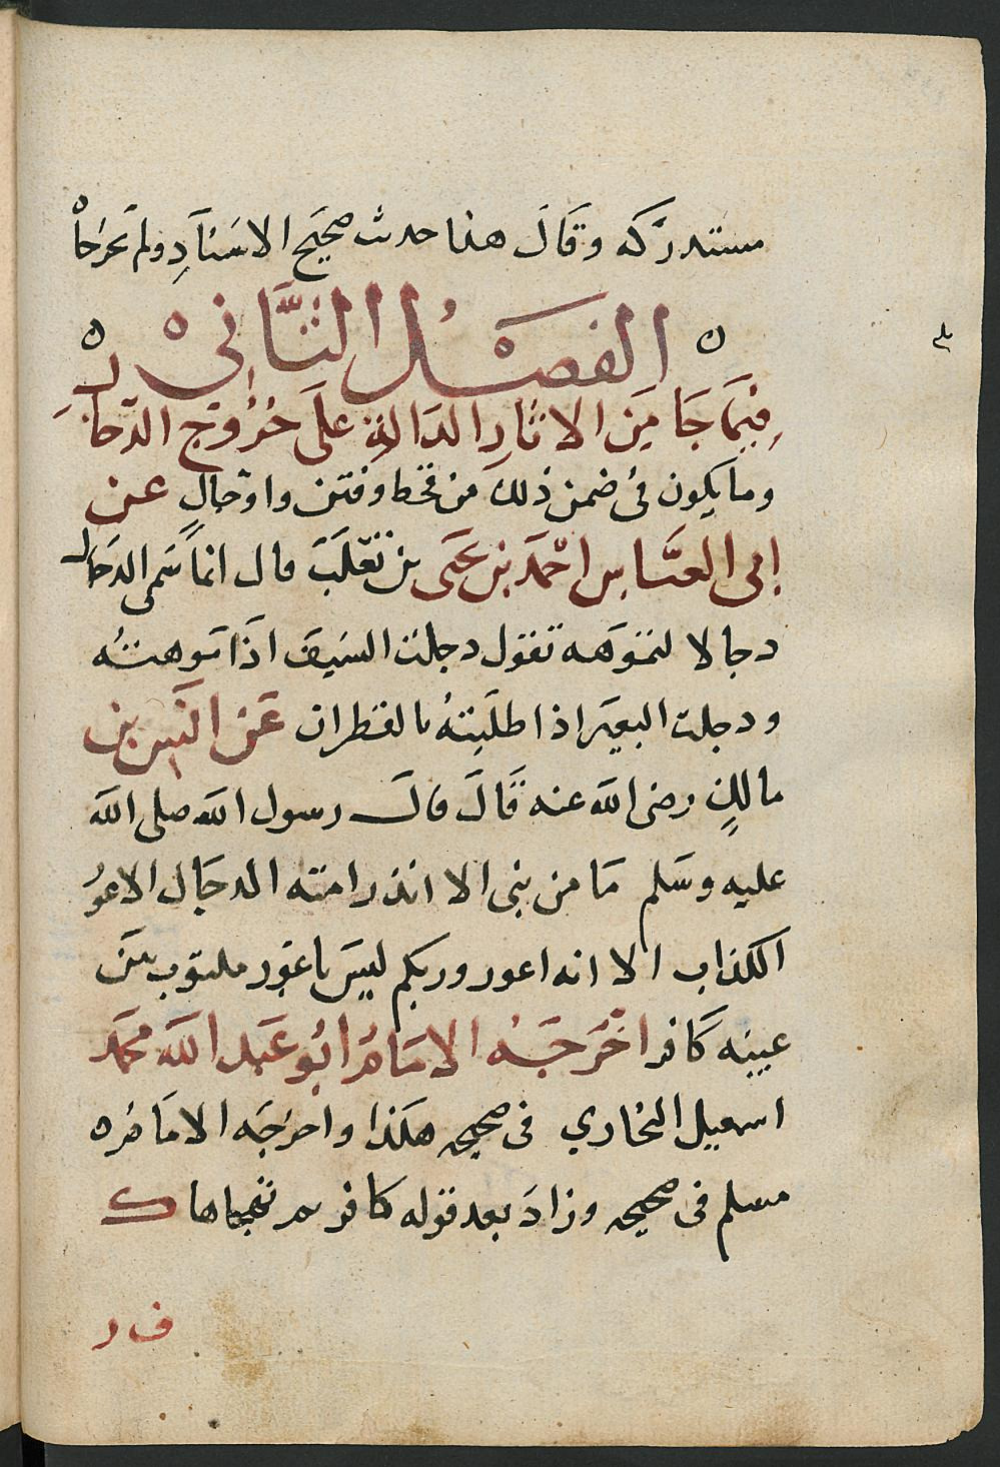 مستدركه وقال هذا حدث صحيح الاسناد ولم يخرجاه
الفصل الثاني
فيما جا من الاثار الدالة على خروج الدجال
وما يكون في ضمن ذلك من قحط وفتن واوجال عن
ابى العباس احمد بن يحيى بن ثعلب قال انما سمى الدجال
دجالا لتموهه تقول دجلت السيف اذا موهته
ودجلت البعير اذا طلبته بالقطران عن انس بن
مالك رضى الله عنه قال قال رسول الله صلى الله
عليه وسلم ما من نبى الا انذر امته الدجال الاعور
الكذاب الا انه اعور وربكم ليس باعور مكتوب بين
عينيه كافر اخرجه الامام ابو عبد الله محمد
اسمعيل البخاري فى صحيحه هكذا واخرجه الامام
مسلم فى صحيحه وزاد بعد قوله كافر ثم تهجاها ك
ف ر